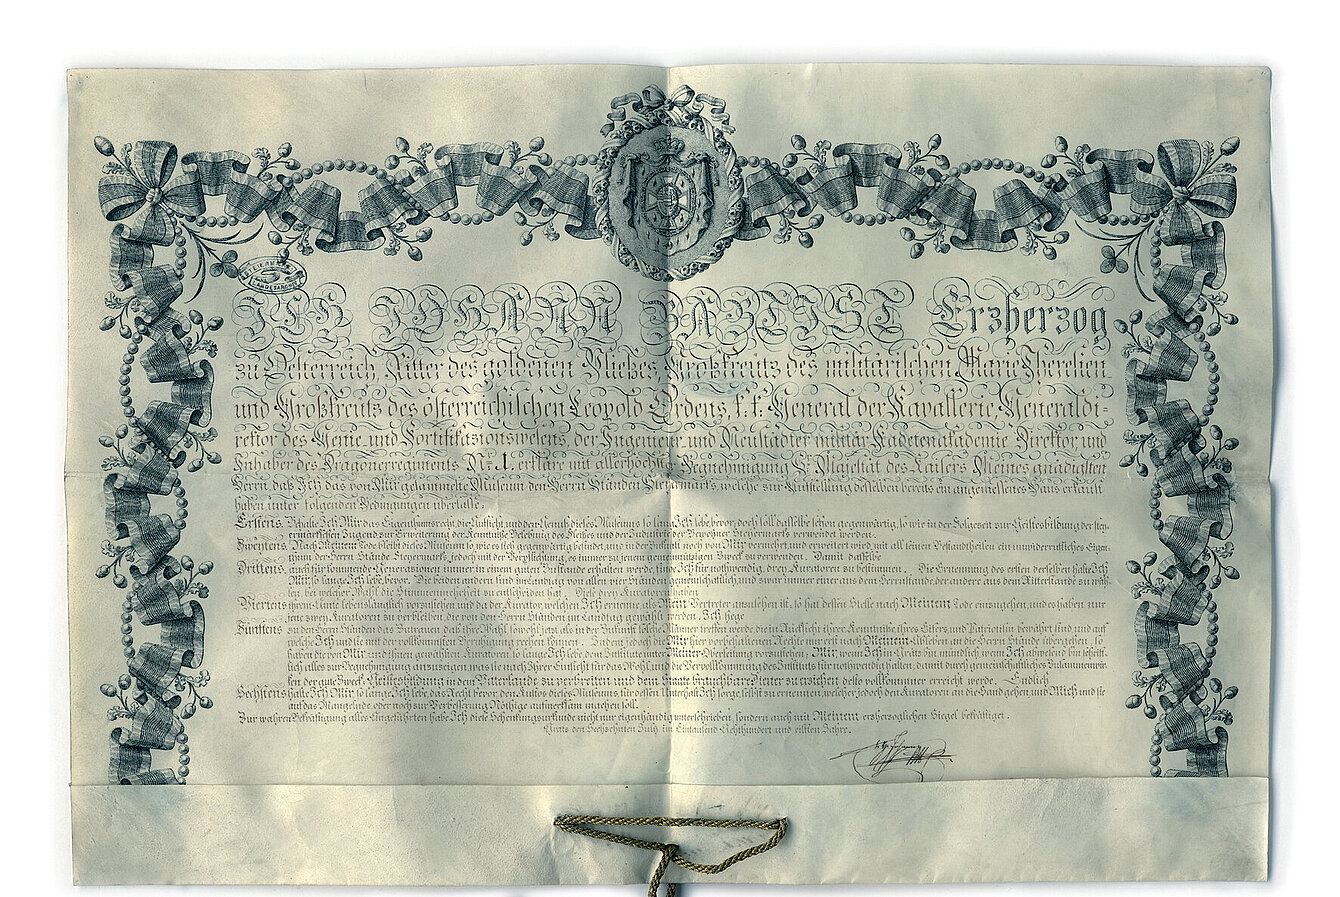 STEIERMÄRK. LANDESARCHIV
ICH JOHANN BAPTIST Erzherzog
zu Oesterreich, Ritter des goldenen Vließes, Großkreutz des militärischen Marie Theresien
und Großkreutz des österreichischen Leopold Ordens, k. k. General der Kavallerie, Generaldi-
rektor des Genie und Fortifikazionswesens, der Ingenieur und Neustädter militär Kadetenakademie Direktor und
Inhaber des Dragonerregiments Nr. 1. erkläre mit allerhöchster Begnehmigung Sr. Majestät des Kaisers Meines gnädigsten
Herrn, daß Ich das von Mir gesammelte Museum den Herrn Ständen Steyermarks, welche zur Aufstellung desselben bereits ein angemessenes Haus erkauft
haben unter folgenden Bedingungen überlasse:
Erstens. Behalte Ich Mir das Eigenthumsrecht, die Aufsicht, und den Genuß dieses Museums so lang Ich lebe, bevor; doch soll dasselbe schon gegenwärtig, so wie in der Folgezeit zur Geistesbildung der stey-
ermärkischen Jugend, zur Erweiterung der Kenntniße, Belebung des Fleißes und der Industrie der Bewohner Steyermarks verwendet werden.
Zweytens. Nach Meinem Tode bleibt dieses Museum so wie es sich gegenwärtig befindet, und in der Zukunft noch von Mir vermehrt, und erweitert wird, mit all seinen Bestandtheilen ein unwiderrufliches Eigen-
thum der Herrn Stände Steyermarks, jedoch mit der Verpflichtung, es immer zu jenem gemeinnützigen Zweck zu verwenden. Damit dasselbe
Drittens. auch für kommende Generazionen immer in einem guten Zustande erhalten werde, finde Ich für nothwendig, drey Kuratoren zu bestimmen. Die Ernennung des ersten derselben halte Ich
Mir, so lange Ich lebe, bevor. Die beiden andern sind im Landtag von allen vier Ständen gemeinschaftlich, und zwar immer einer aus dem Herrnstande, der andere aus dem Ritterstande zu wäh-
len, bei welcher Wahl die Stimmenmehrheit zu entscheiden hat. Diese drey Kuratoren haben
Viertens ihrem Amte lebenslänglich vorzustehen und da der Kurator, welchen Ich ernenne, als Mein Vertreter anzusehen ist, so hat dessen Stelle nach Meinem Tode einzugehen, und es haben nur
jene zwey Kuratoren zu verbleiben, die von den Herrn Ständen im Landtag gewählt werden. Ich hege
Fünftens zu den Herrn Ständen das Zutrauen, daß ihre Wahl sowohl jetzt als in der Zukunft solche Männer treffen werde, die in Rücksicht ihrer Kenntniße, ihres Eifers, und Patriotism bewährt sind und auf
welche Ich und sie mit der vollkommsten Beruhigung rechnen können. Indem jedoch die Mir hier vorbehaltenen Rechte nur erst nach Meinem Ableben an die Herrn Stände übergehen, so
haben die von Mir und ihnen gewählten Kuratoren so lange Ich lebe dem Institute unter Meiner Oberleitung vorzustehen, Mir wenn Ich in Grätz bin mündlich, wenn Ich abwesend bin schrift-
lich alles zur Begnehmigung anzuzeigen, was sie nach Ihrer Einsicht für das Wohl, und die Vervollkommnung des Instituts für nothwendig halten; damit durch gemeinschaftliches Zusammenwir-
ken der gute Zweck: Geistesbildung in dem Vatterlande zu verbreiten und dem Staate brauchbare Diener zu erziehen desto vollkommner erreicht werde. Endlich
Sechstens halte Ich Mir so lange Ich lebe, das Recht bevor, den Kustos dieses Museums, für dessen Unterhalt Ich sorge, selbst zu ernennen, welcher jedoch den Kuratoren an die Hand gehen, und Mich und sie
auf das Mangelnde, oder noch zur Verbesserung Nöthige aufmerksam machen soll.
Zur wahren Bekräftigung alles Angeführten habe Ich diese Schenkungsurkunde nicht nur eigenhändig unterschrieben, sondern auch mit Meinem erzherzoglichen Siegel bekräftiget.
Grätz den Sechzehnten July im Eintausend Achthundert und eilften Jahre.